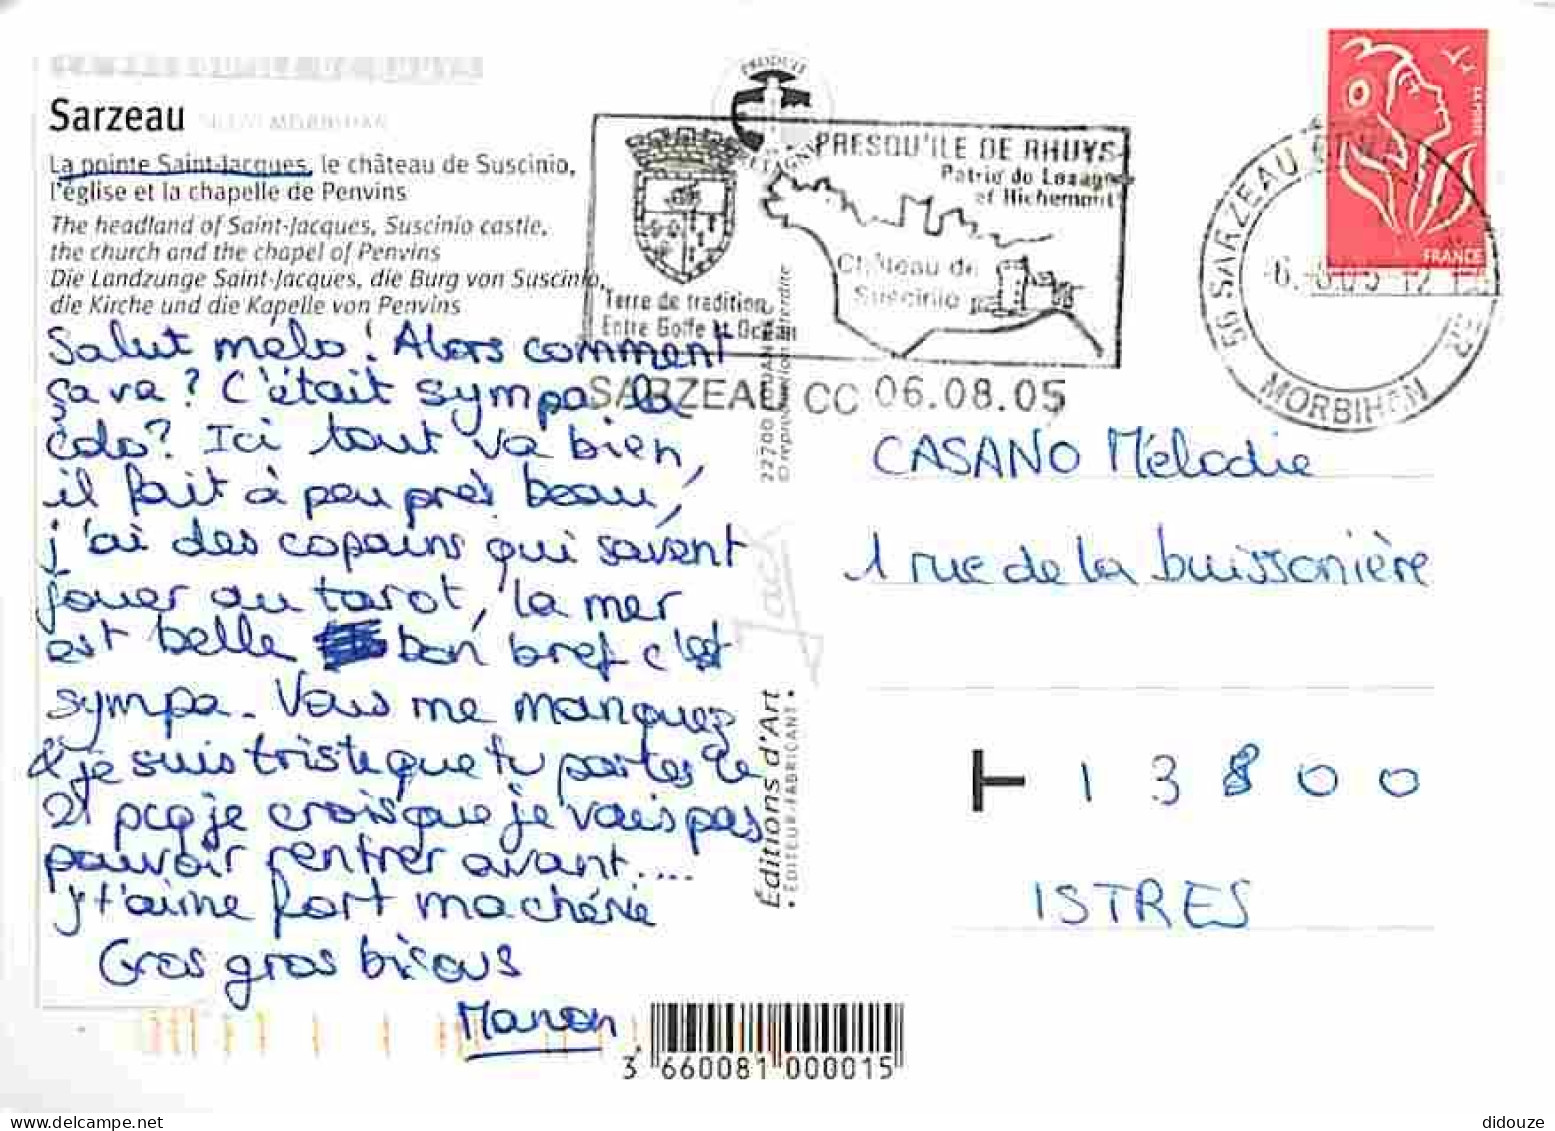 Sarzeau
MORBIHAN
La pointe Saint-Jacques, le château de Suscinio,
l'église et la chapelle de Penvins
The headland of Saint-Jacques, Suscinio castle,
the church and the chapel of Penvins
Die Landzunge Saint-Jacques, die Burg von Suscinio,
die Kirche und die Kapelle von Penvins
Salut mélo ! Alors comment
sava ? C'était sympa la
colo ? Ici tout va bien,
il fait à peu près beau,
j'ai des copains qui savent
jouer au tarot, la mer
est belle bon bref c'est
sympa. Vous me manquez
& je suis triste que tu partes le
21 pcq je crois que je vais pas
pouvoir rentrer avant....
j't'aime fort ma chérie
Gros gros bisous
Manon
PRODUIT
BRETAGNE
PRESQU'ILE DE RHUYS
Patrie de Lesage
et Richemont
Château de
Suscinio
Terre de tradition
Entre Golfe et Océan
SARZEAU CC 06.08.05
22700
© reproduction interdite
Jack
Éditions d'Art
• ÉDITEUR-FABRICANT •
56 SARZEAU
MORBIHAN
FRANCE
CASANO Mélodie
1 rue de la buissonière
T 13800
ISTRES
3 660081 000015
didouze